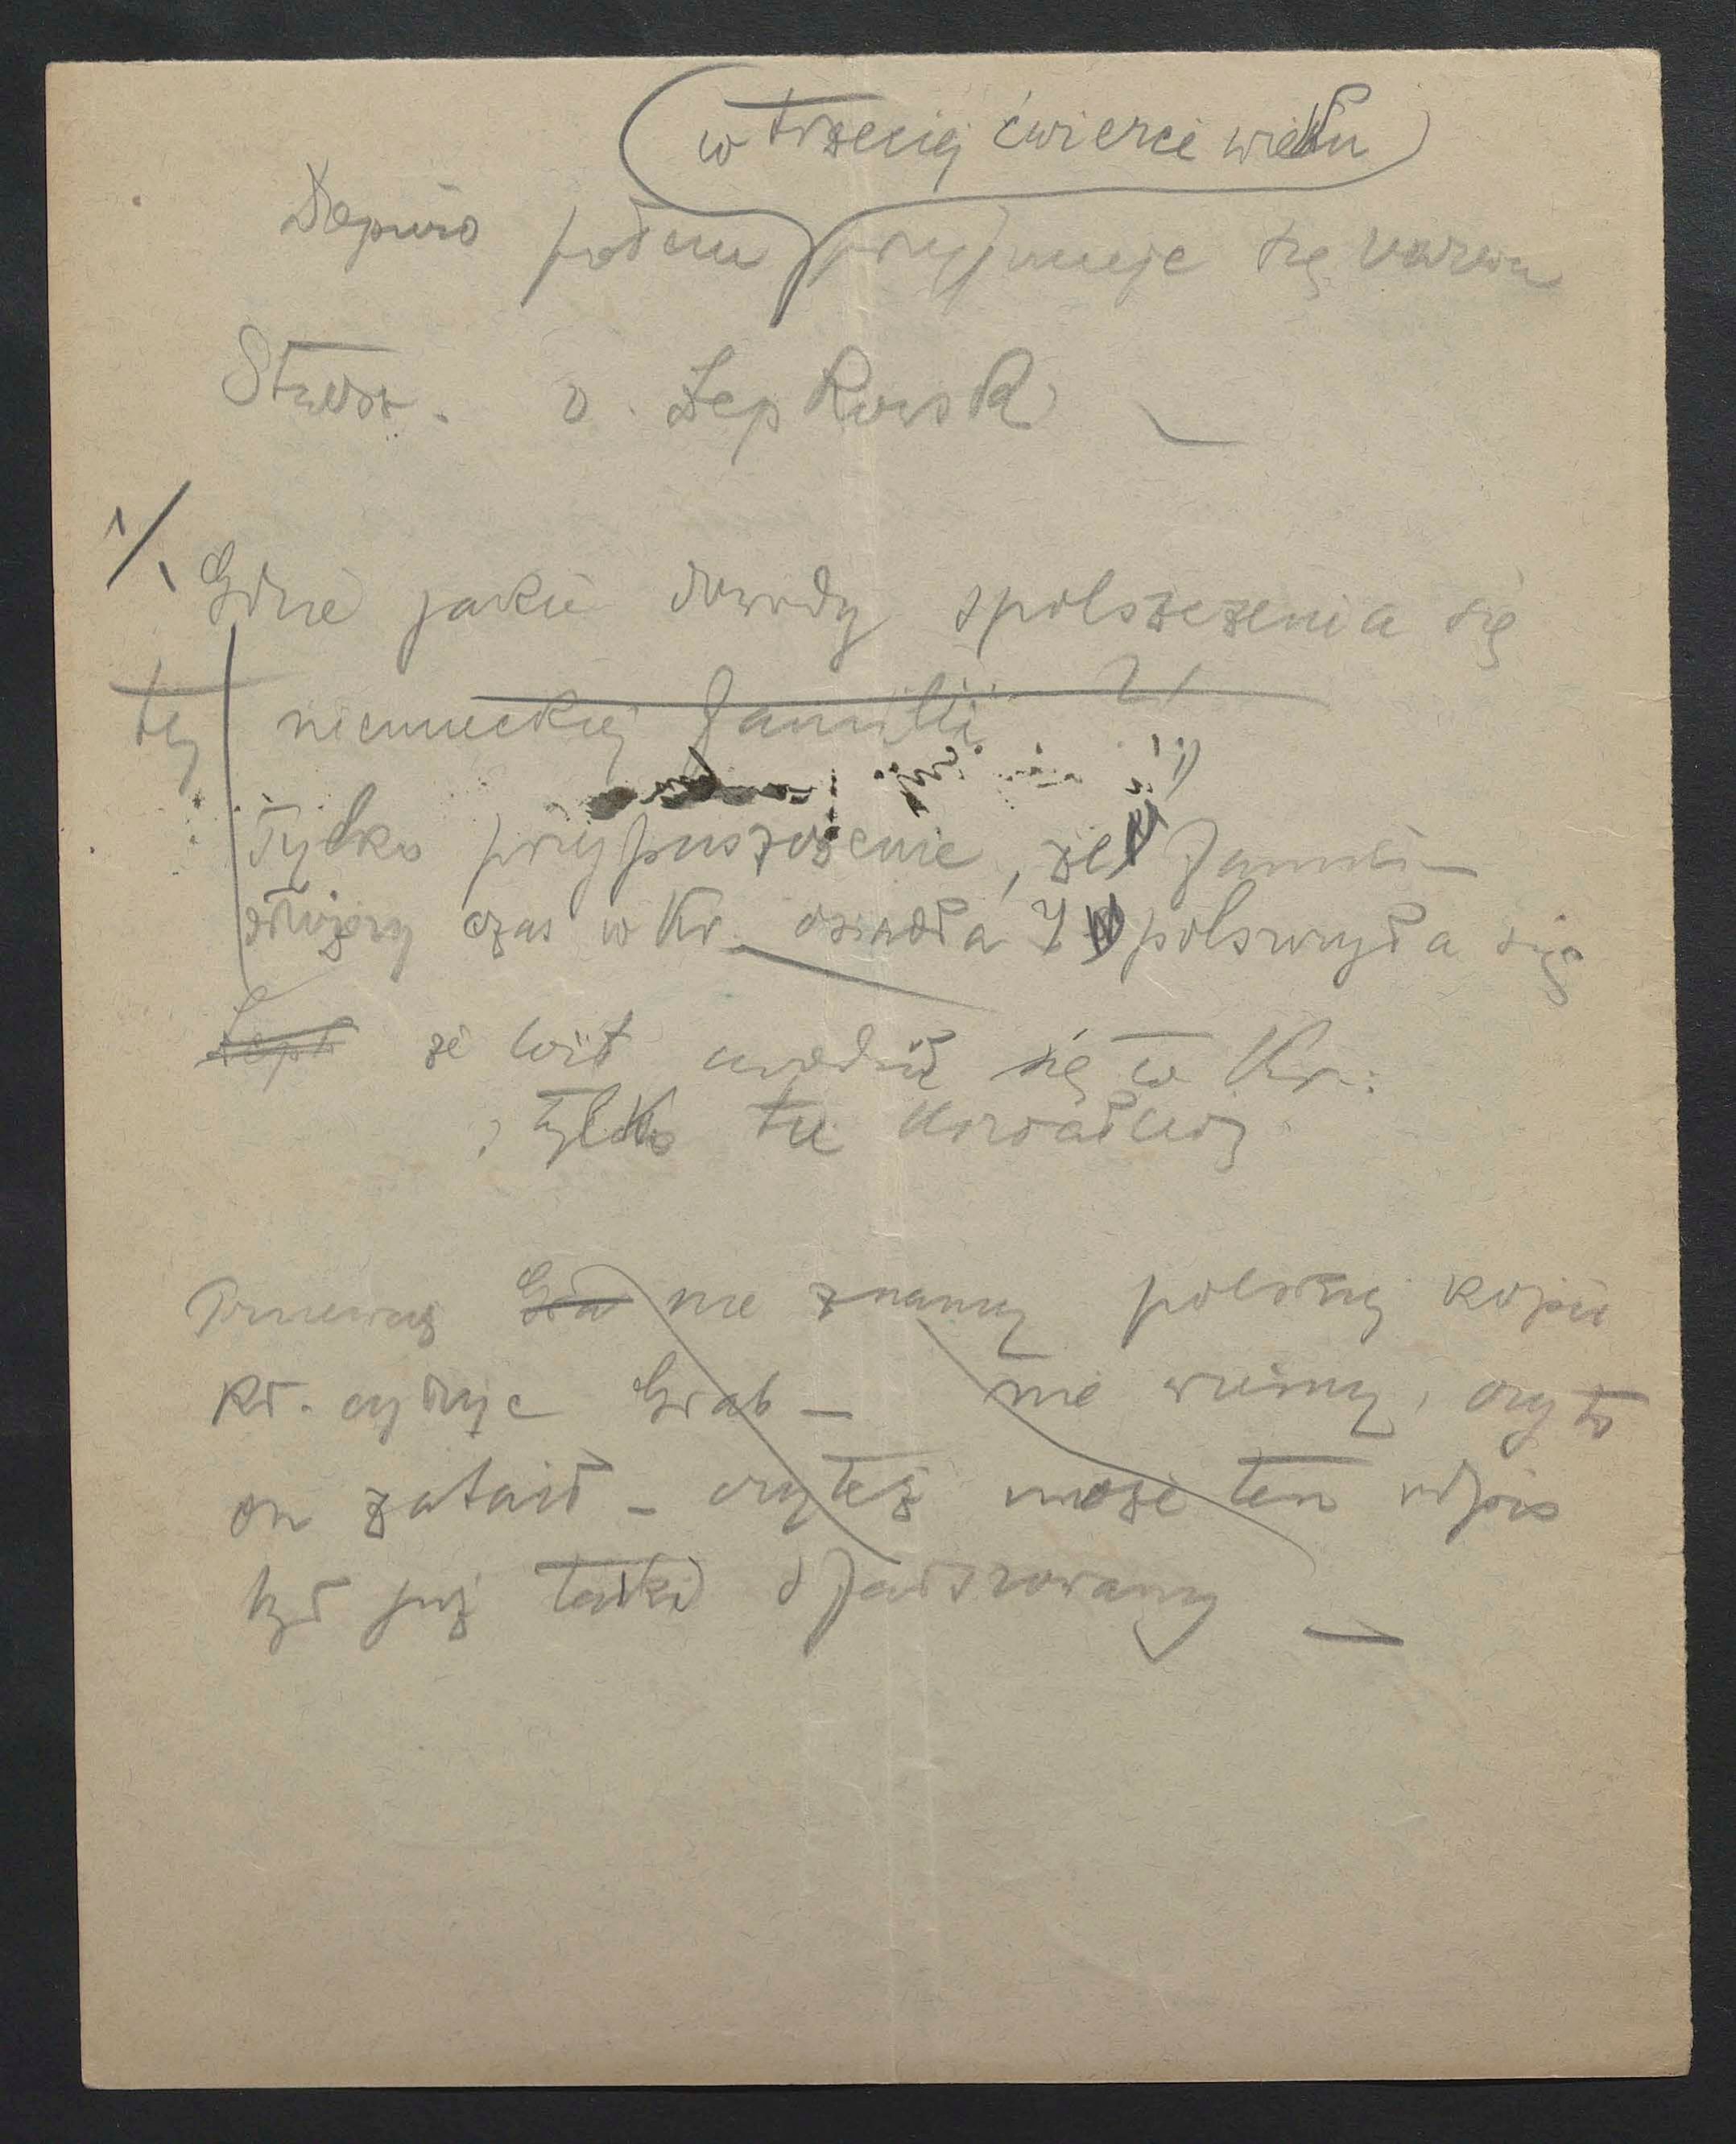 w trzeciej ćwierci wieku
Dopiero potem przyjmuje się nazwa
Stwosz. v. Łepkowsk
1/. Gdzie jakie dowody spolszczenia się
tej niemieckiej familii
Tylko przypuszczenie, że familia
dłuższy czas w Kr. osiadła i spolszczyła się
Łepk że Wit urodził się w Kr.
tylko tu
Ponieważ Gra nie znamy polskiej kopii
Kt. cytuje Grab — nie wiemy, czy to
on zataił – czy też może ten odpis
był już taki sfałszowany —